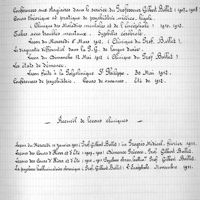 Conférences aux stagiaires dans le service du Professeur Gilbert Ballet (1912, 1918
Cours théorique et pratique de psychiatrie médico-légale
( Clinique des Maladies mentales et de l'encéphale ) 1910, 1912.
Tabes avec troubles mentaux. Syphilis cérébrale.
Leçon du Mercredi 6 Mars 1912, ( Clinique du Prof. Ballet ).
Le diagnostic différentiel dans la P. G. de longue durée.
Leçon du Dimanche 12 Mai 1912 ( Clinique du Prof. Ballet ).
Les états de démence.
Leçon faite à la Polyclinique St Philippe. 30 Mai 1912.
Conférences de psychiatrie. Cours de vacances. Été de 1912.
Recueil de leçons cliniques
Leçon du Mercredi 11 janvier 1911 ( Prof. Gilbert Ballet ) in Progrès Médical, février 1911.
Leçons des Cours d'Hiver et d'Été : 1909-1910 : Démences Précoces. Prof. Gilbert Ballet.
Leçons des Cours d'Hiver et d'Été : 1910-1911 : Prof. Gilbert Ballet.
La psychose hallucinatoire chronique. Prof. Gilbert Ballet. L'Encéphale. Novembre 1911.